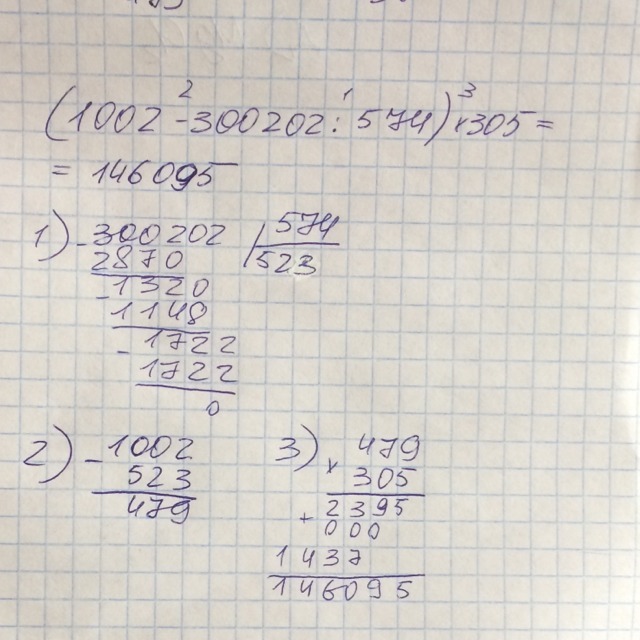 (1002 - 300202 : 574) × 305 =
2 1 3
= 146095
1) - 300202 | 574
2870 523
- 1320
1148
- 1722
1722
0
2) - 1002
523
479
3) × 479
305
+ 2395
000
1437
146095